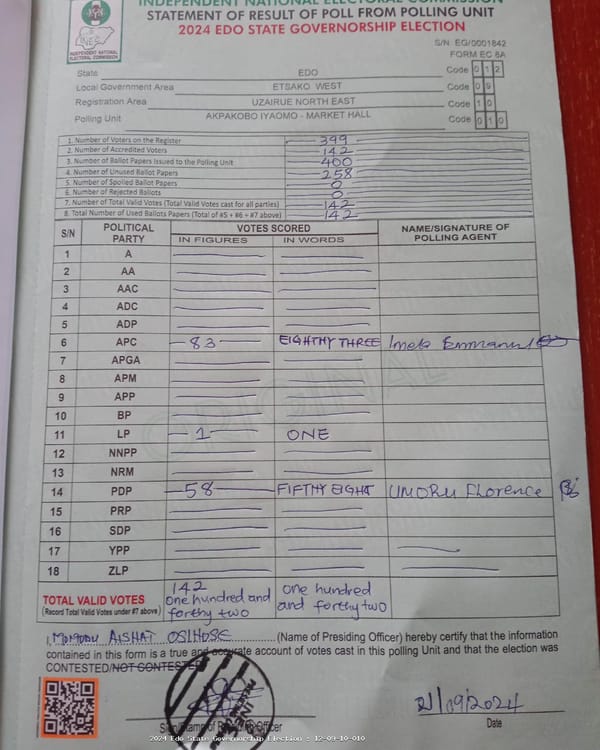 INDEPENDENT NATIONAL ELECTORAL COMMISSION
STATEMENT OF RESULT OF POLL FROM POLLING UNIT
2024 EDO STATE GOVERNORSHIP ELECTION
INEC
INDEPENDENT NATIONAL
ELECTORAL COMMISSION
S/N EG/0001842
FORM EC 8A
State EDO Code 0 1 2
Local Government Area ETSAKO WEST Code 0 9
Registration Area UZAIRUE NORTH EAST Code 1 0
Polling Unit AKPAKOBO IYAOMO - MARKET HALL Code 0 1 0
1. Number of Voters on the Register 399
2. Number of Accredited Voters 142
3. Number of Ballot Papers Issued to the Polling Unit 400
4. Number of Unused Ballot Papers 258
5. Number of Spoiled Ballot Papers 0
6. Number of Rejected Ballots 0
7. Number of Total Valid Votes (Total Valid Votes cast for all parties) 142
8. Total Number of Used Ballots Papers (Total of #5 + #6 + #7 above) 142
S/N POLITICAL PARTY VOTES SCORED NAME/SIGNATURE OF POLLING AGENT
IN FIGURES IN WORDS
1 A
2 AA
3 AAC
4 ADC
5 ADP
6 APC 83 EIGHTHY THREE Emmanuel
7 APGA
8 APM
9 APP
10 BP
11 LP 1 ONE
12 NNPP
13 NRM
14 PDP 58 FIFTHY EIGHT UMORU Florence
15 PRP
16 SDP
17 YPP
18 ZLP
TOTAL VALID VOTES 142 one hundred and forthy two one hundred and forthy two
(Record Total Valid Votes under #7 above)
ORIGINAL
I, MOMODU AISHAT OSIHOSE (Name of Presiding Officer) hereby certify that the information
contained in this form is a true and accurate account of votes cast in this polling Unit and that the election was
CONTESTED/NOT CONTESTED
21/09/2024
Sign/Stamp of Presiding Officer Date
2024 Edo State Governorship Election : 12-09-10-010